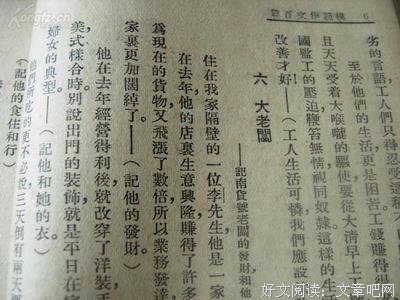 作文百 6
劣的言語，工人們只得忍受
至於他們的生活更是困苦，工錢賺得很
且天天受着大喉嚨的驅使，要從大清早上
國監工的壓迫鞭笞無情，視同奴隸，這樣的生
改善才好！——（工人生活可憐我們應設
六 大老闆
——記南貨號老闆的發財和他
住在我家隔壁的一位李先生，他是一家
在去年，他的店裏生意興隆，賺得了許多
為現在的貨物又飛漲了數倍，所以業務發達
家裏更加闊綽了——（記他的發財）
他在去年經營得利後，就改穿了洋裝
美式樣合時，別說出門的裝飾，就是平日在家
婦女的典型——（記他和她的衣）
他們所吃的更不必說，三天倒有兩天
（記他的食住和行）
好文阅读：文章吧网